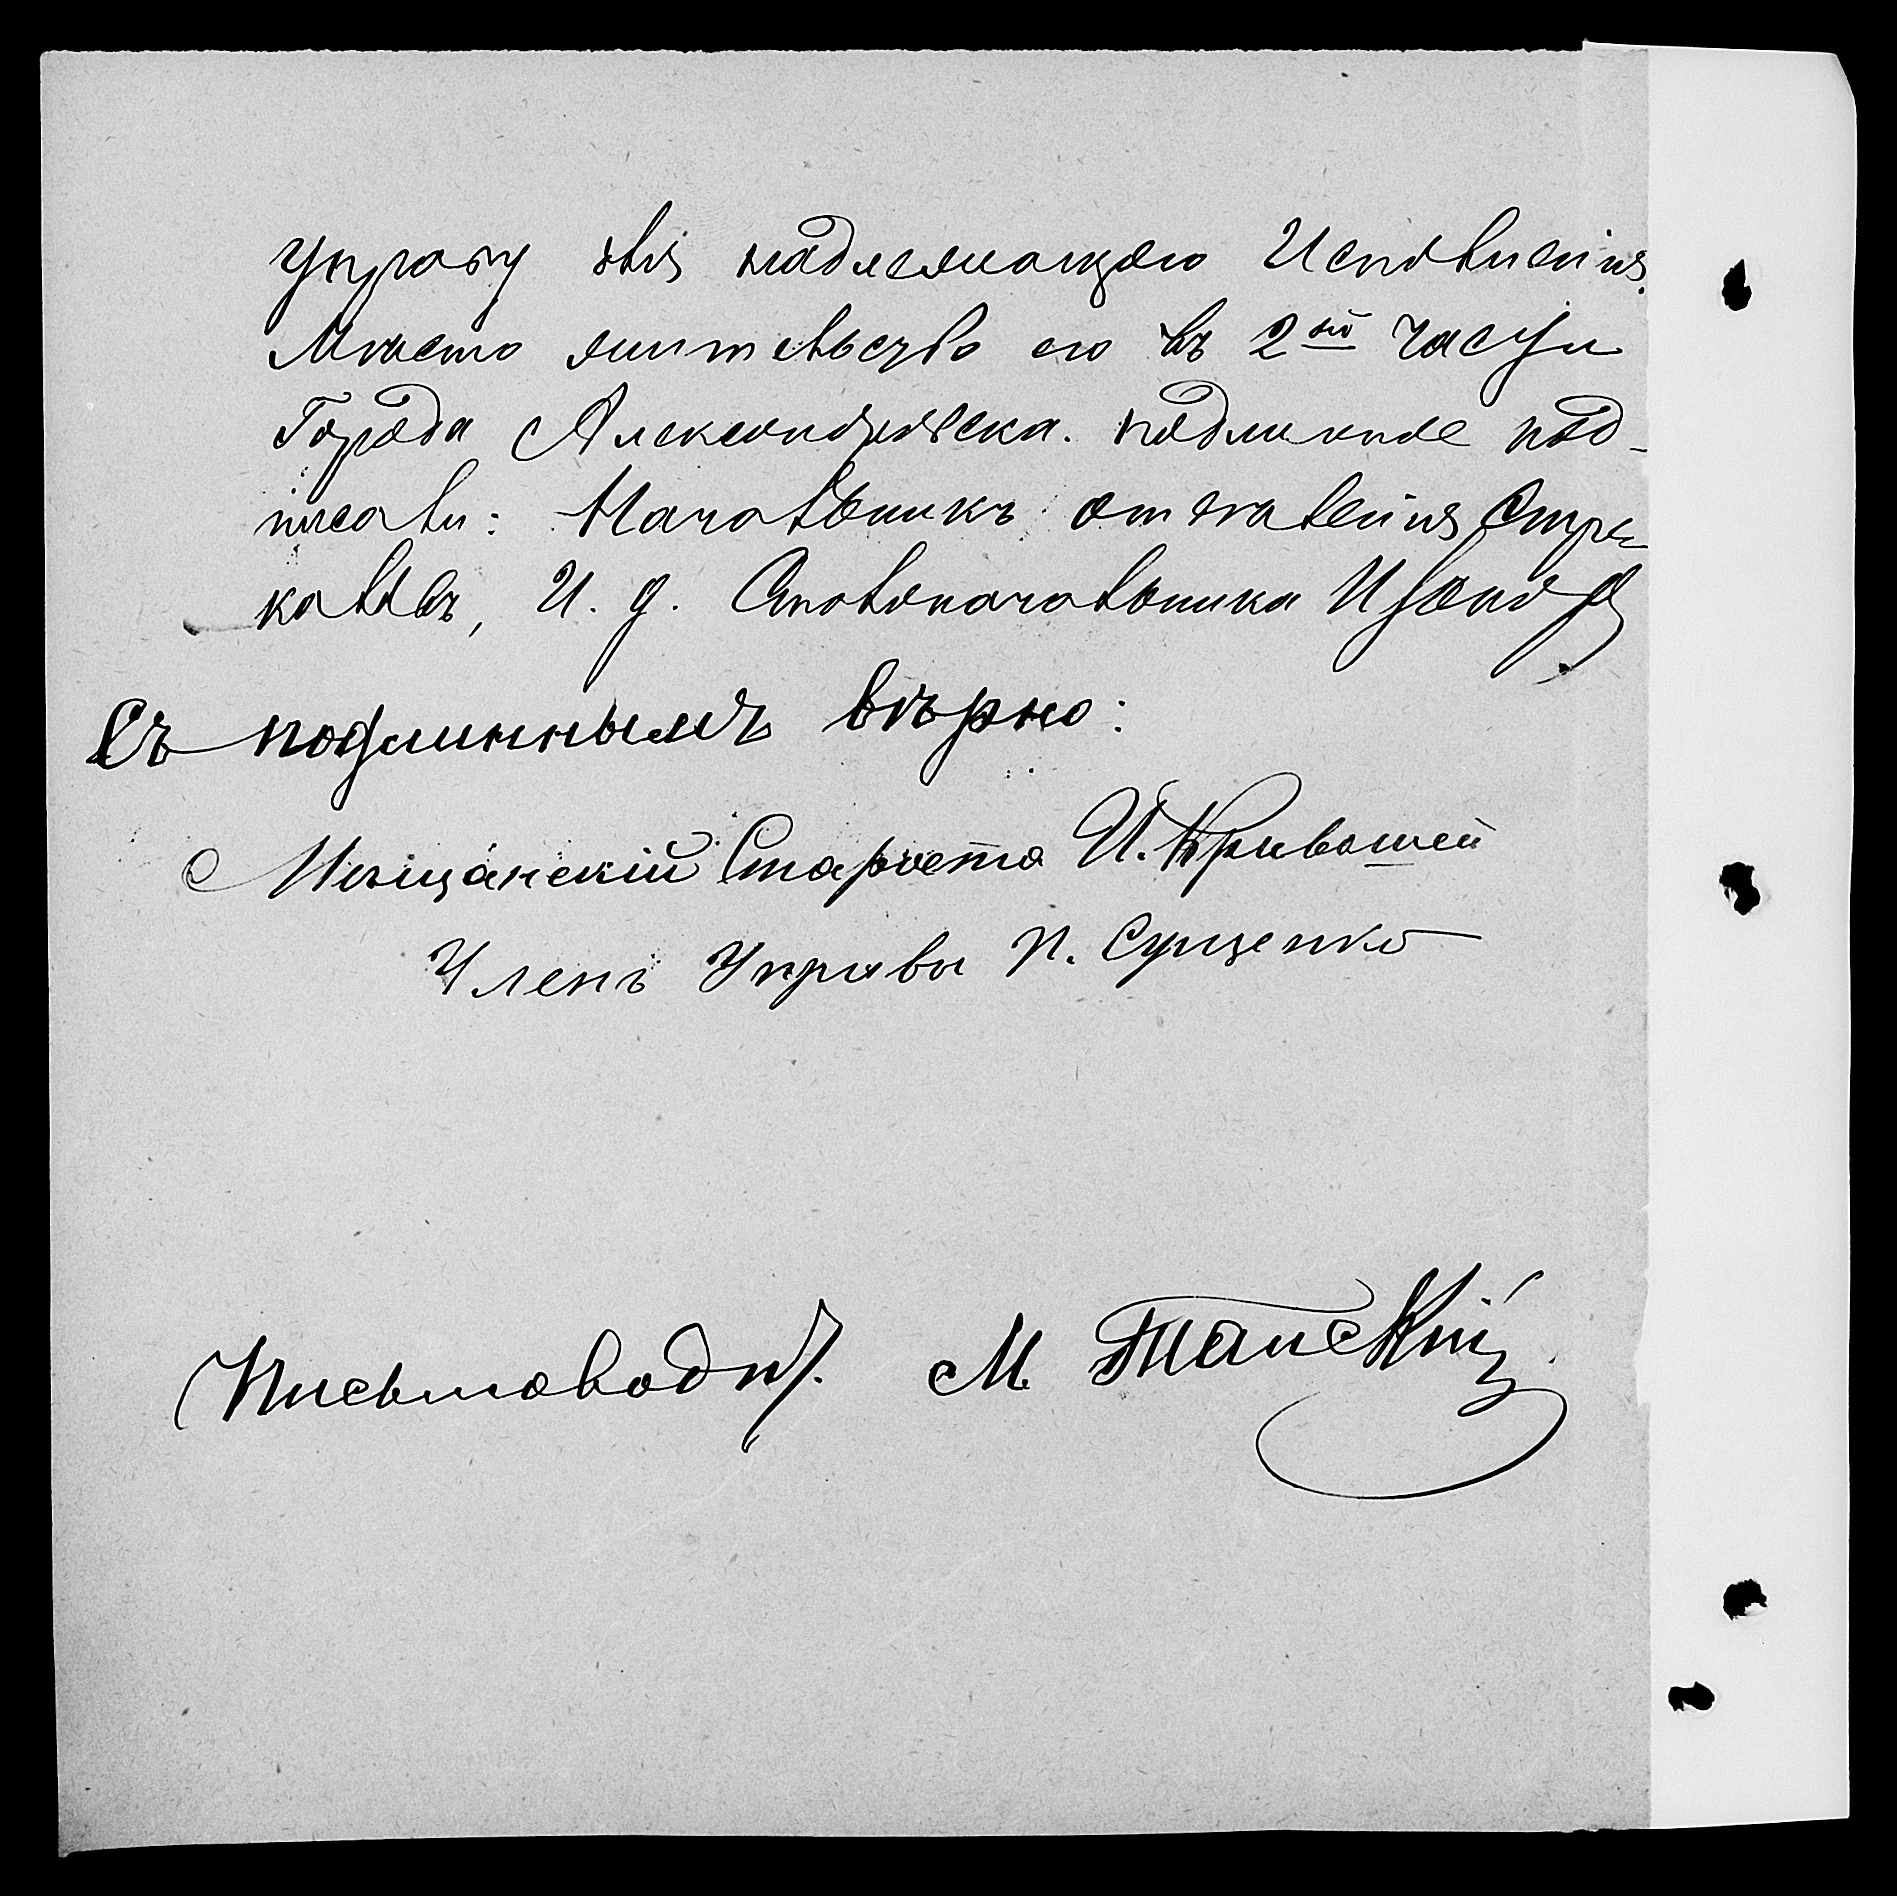 управу для надлежащаго Исполненія.
Мѣсто жительство его въ 2ой части
Города Александровска. подлинное под-
писали: Начальникъ отдѣленія Стрѣ-
каловъ, И. д. Столоначальника
Съ подлиннымъ вѣрно:
Мѣщанскій Староста И. Кривошей
Членъ Управы П. Сущенко
Письмоводит. М Танскій